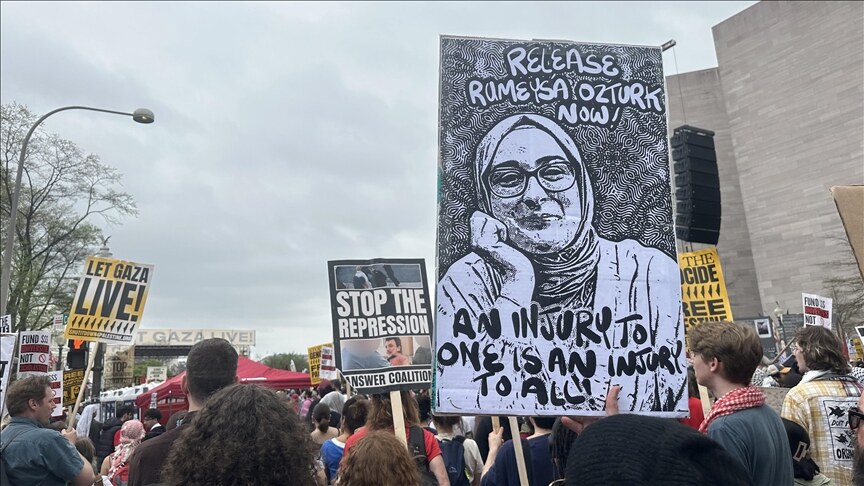 RELEASE
RUMEYSA OZTURK
NOW!
AN INJURY TO
ONE IS AN INJURY
TO ALL!
STOP THE
REPRESSION
ANSWER COALITION
LET GAZA
LIVE!
LET GAZA LIVE!
THE
FREE
FUND
NOT
STOP
FUND
NOT